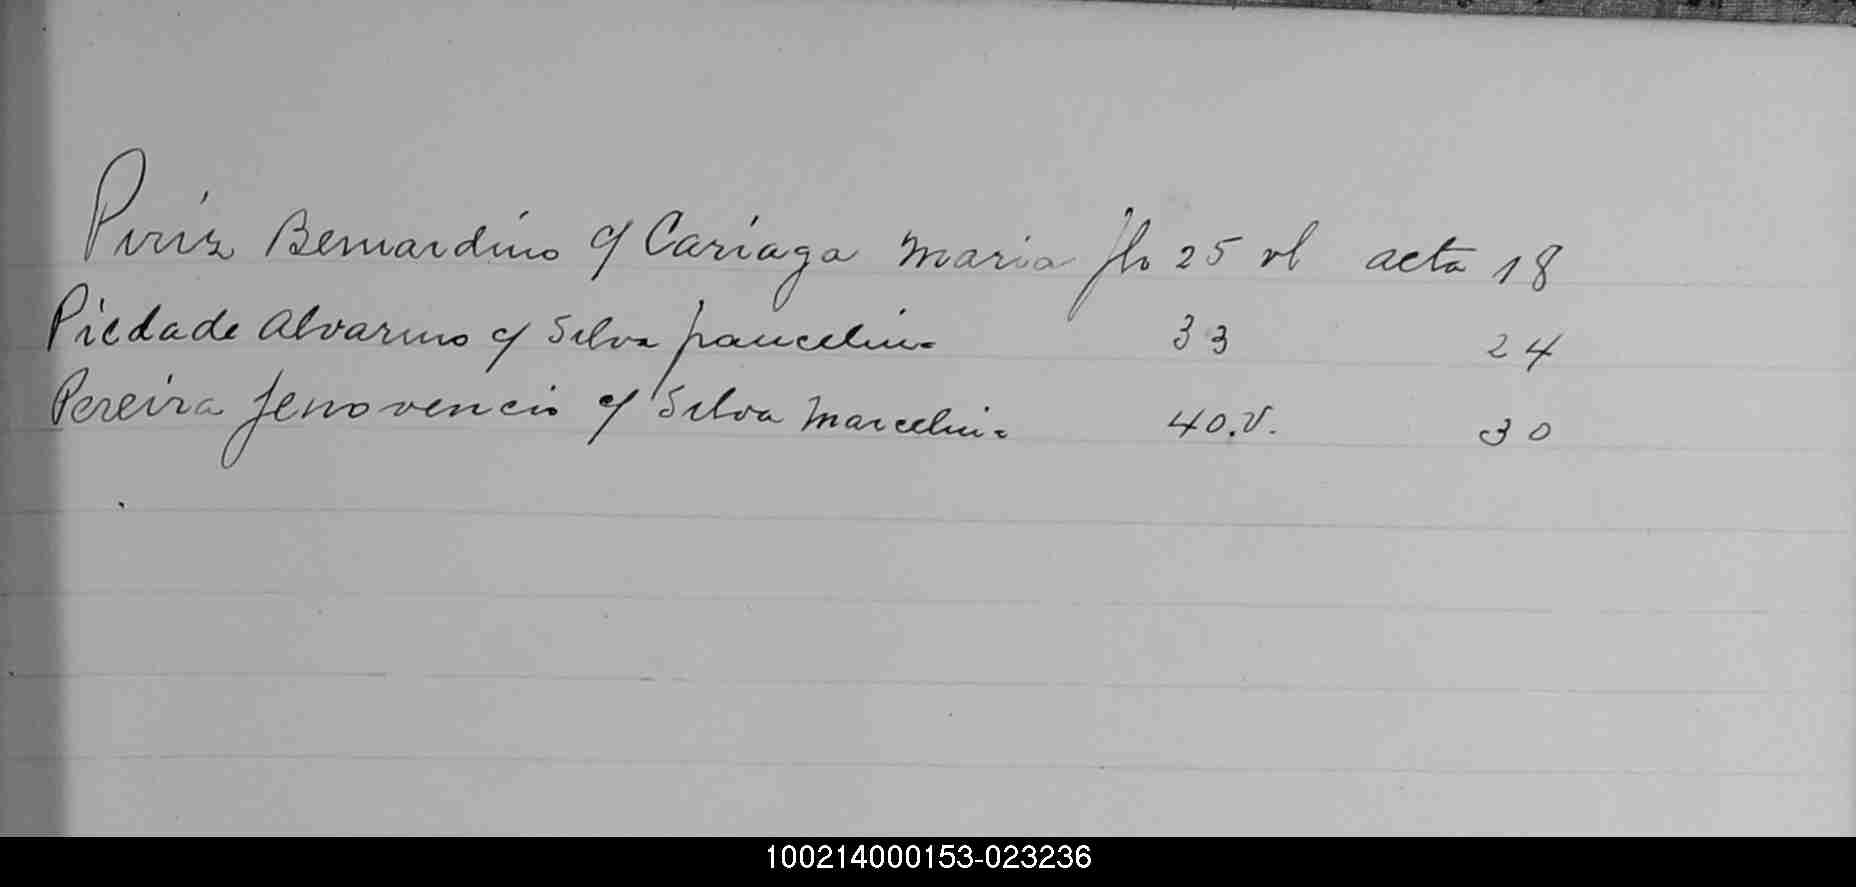 Piriz Bernardino y Cariaga Maria flo 25 vl acta 18
Piedade Alvarino y Silva francelina 33 24
Pereira Jenovencio y Silva Marcelina 40.V. 30
100214000153-023236